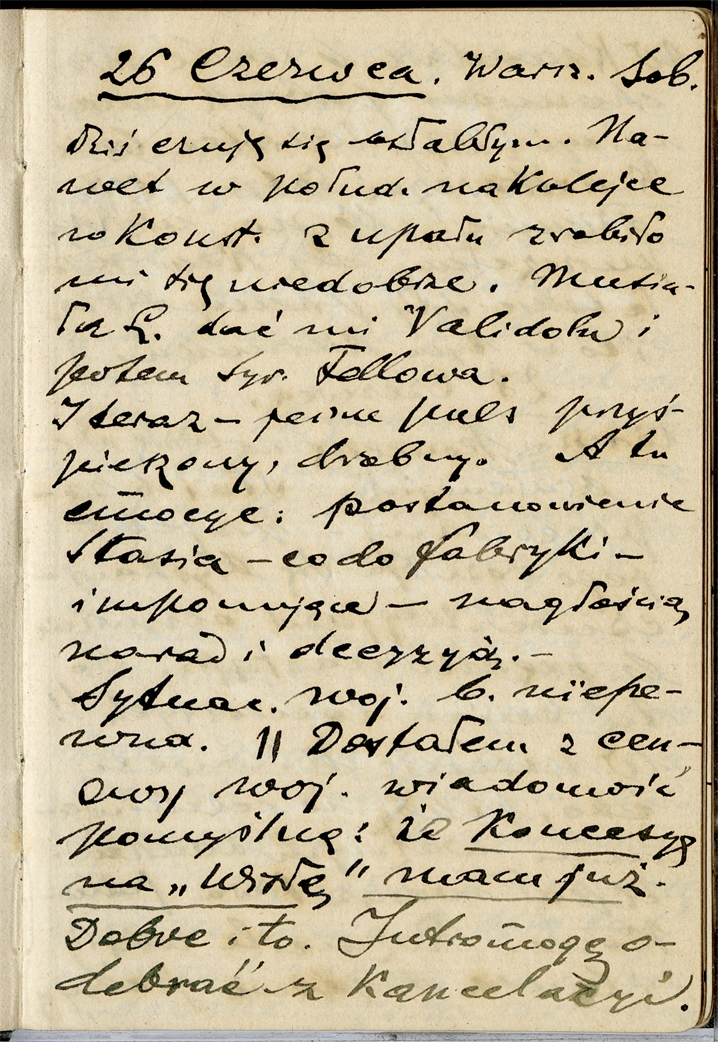 26 Czerwca. Warsz. Sob.
Dziś czuję się osłabłym. Na-
wet w połud. na kolejce
w Konst. z upału zrobiło
mi się niedobrze. Musia-
ła L. dać mi Validolu i
potem Syr. Fellowa.
I teraz – puls przyś-
pieszony, drobny. A tu
emocye: postanowienie
Stasia – co do fabryki –
imponujące – nagłością
narad i decyzyą. –
Sytuac. woj. b. niepe-
wna. || Dostałem z cen-
woj. wiadomość
pomyślną: że Koncesyę
na „Wisłę” mam już.
Dobre i to. Jutro mogę o-
debrać z Kancelaryi.